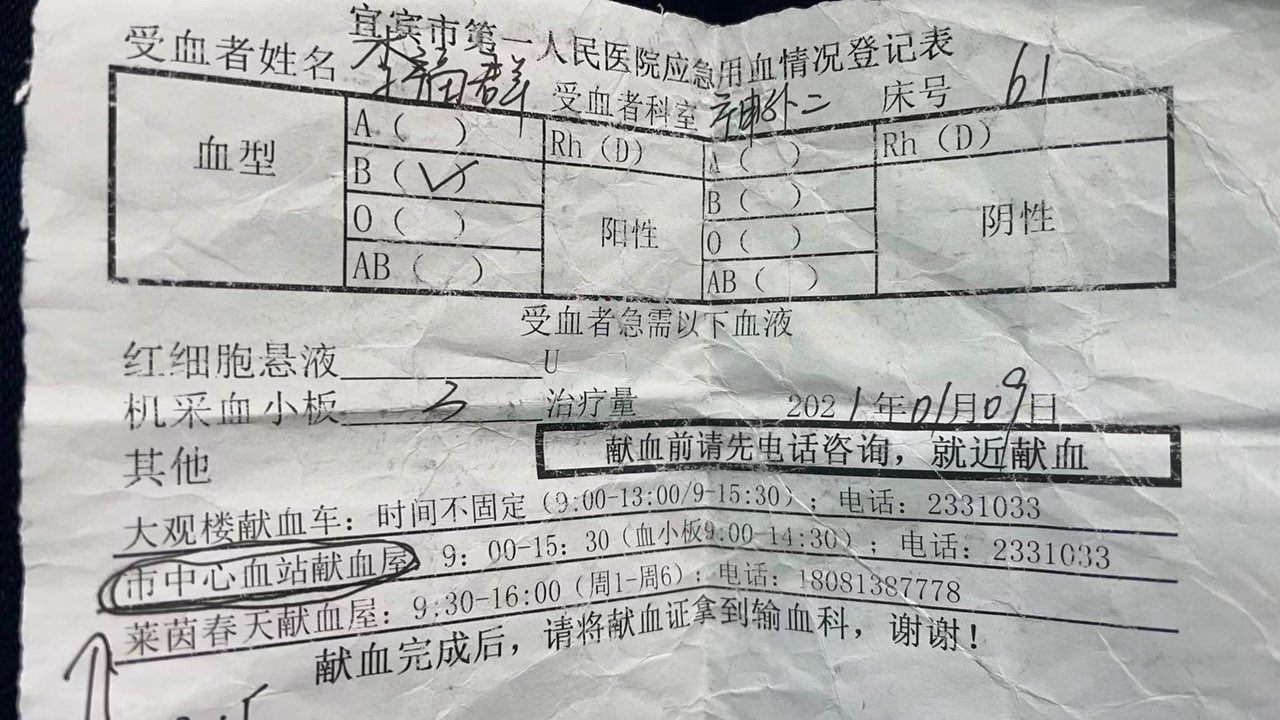 宜宾市第一人民医院应急用血情况登记表
受血者姓名 李福群 受血者科室 神外二 床号 61
血型
A ( ) Rh (D) A ( ) Rh (D)
B (✓) 阳性 B ( ) 阴性
O ( ) O ( )
AB ( ) AB ( )
受血者急需以下血液
红细胞悬液______U
机采血小板 3 治疗量 2021年01月09日
其他 献血前请先电话咨询，就近献血
大观楼献血车：时间不固定（9:00-13:00/9-15:30）；电话：2331033
市中心血站献血屋 9：00-15：30（血小板9:00-14:30）；电话：2331033
莱茵春天献血屋：9:30-16:00（周1-周6）；电话：18081387778
献血完成后，请将献血证拿到输血科，谢谢！